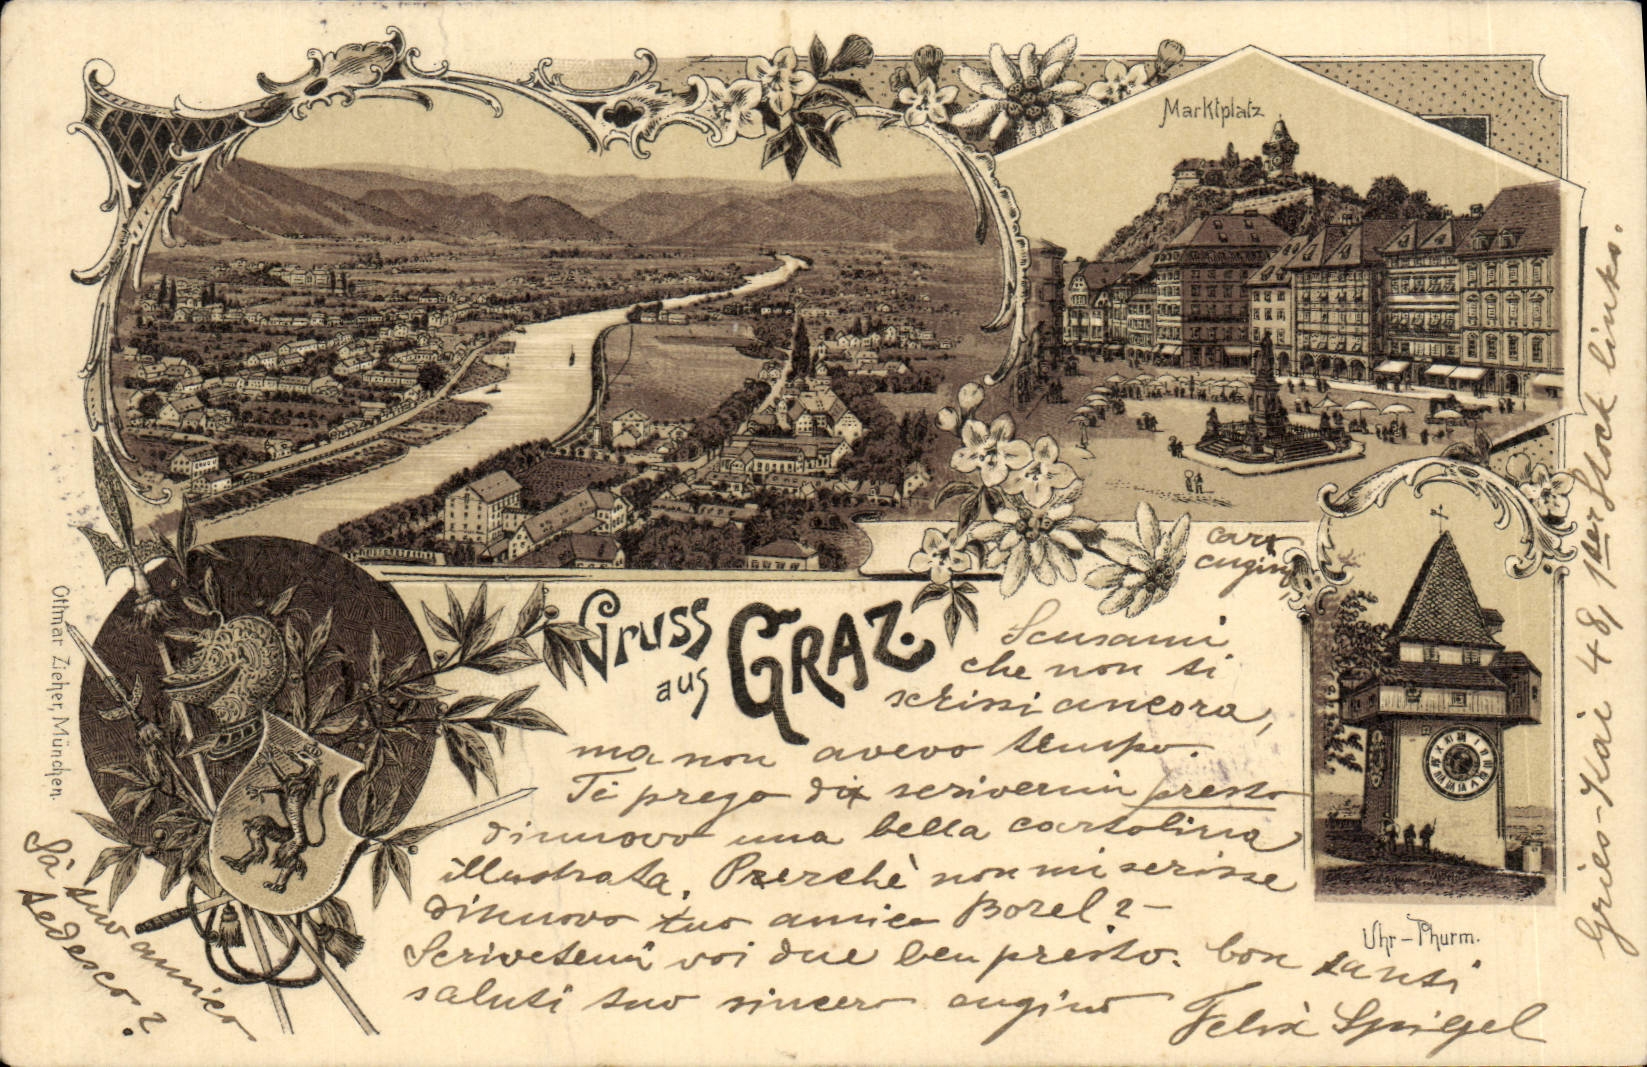 Marktplatz
Gruss
aus
GRAZ.
Uhr-Thurm.
Othmar Zieher, München.
caro
cugino,
Scusami
che non ti
scrissi ancora,
ma non avevo tempo.
Ti prego di scrivermi presto
dinuovo una bella cartolina
illustrata. Perchè non mi scrisse
dinuovo tuo amico Borel?
Scrivetemi voi due ben presto. Con tanti
saluti tuo sincero cugino Felix Spigel
Sà tuo amico
tedesco?
Gries-Kai 48, 1ster Stock links.